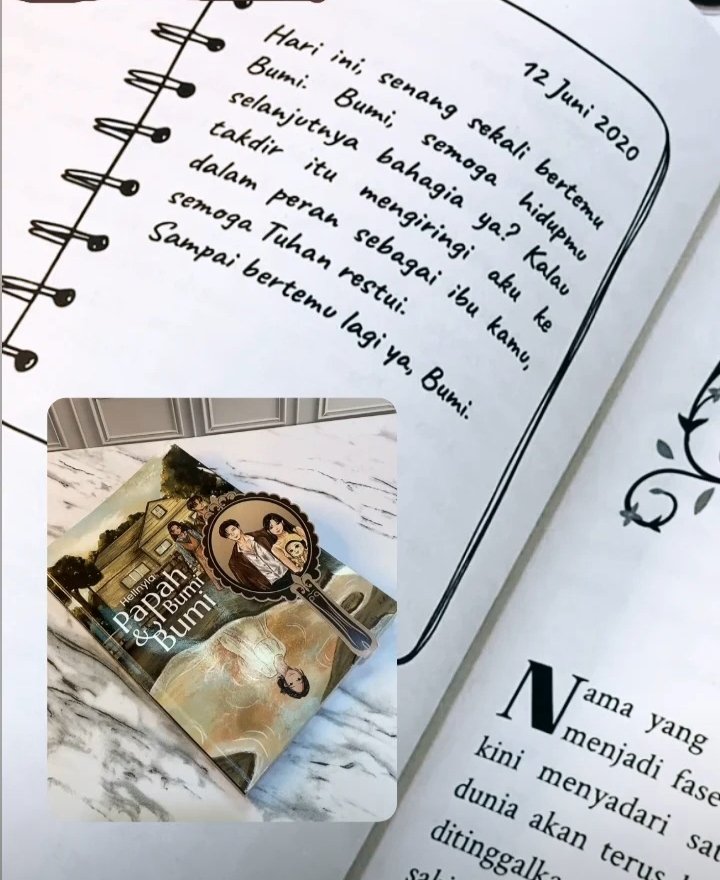 12 Juni 2020
Hari ini, senang sekali bertemu
Bumi. Bumi, semoga hidupmu
selanjutnya bahagia ya? Kalau
takdir itu mengiringi aku ke
dalam peran sebagai ibu kamu,
semoga Tuhan restui.
Sampai bertemu lagi ya, Bumi.
Hellnyla
Papah
& 1 Bumi
Bumi
Nama yang
menjadi fase
kini menyadari
dunia akan terus